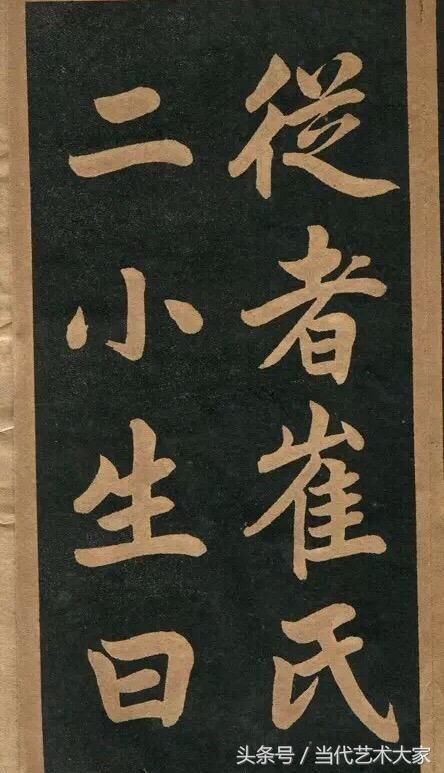 從者崔氏
二小生曰
头条号／当代艺术大家